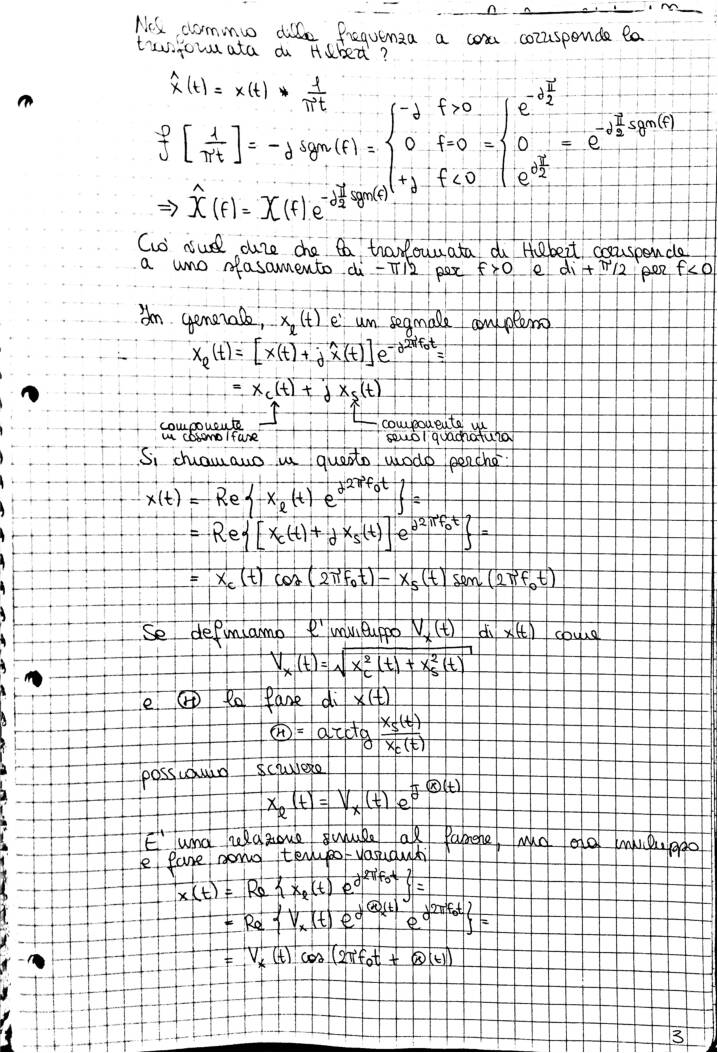 Nel dominio della frequenza a cosa corrisponde la
trasformata di Hilbert?
x̂(t) = x(t) * 1/πt
F[1/πt] = -j sgn(f) = { -j f>0; 0 f=0; +j f<0 = { e^{-jπ/2}; 0; e^{jπ/2} = e^{-jπ/2 sgn(f)}
⇒ X̂(f) = X(f) e^{-jπ/2 sgn(f)}
Ciò vuol dire che la trasformata di Hilbert corrisponde
a uno sfasamento di -π/2 per f>0 e di +π/2 per f<0
In generale, x_l(t) è un segnale complesso
x_l(t) = [x(t) + j x̂(t)] e^{-j2πf₀t} =
= x_c(t) + j x_s(t)
componente in coseno/fase
componente in seno/quadratura
Si chiamano in questo modo perché:
x(t) = Re{ x_l(t) e^{j2πf₀t} } =
= Re{ [x_c(t) + j x_s(t)] e^{j2πf₀t} } =
= x_c(t) cos(2πf₀t) - x_s(t) sen(2πf₀t)
Se definiamo l'inviluppo V_x(t) di x(t) come
V_x(t) = √(x_c²(t) + x_s²(t))
e Ⓗ la fase di x(t)
Ⓗ = arctg x_s(t)/x_c(t)
possiamo scrivere
x_l(t) = V_x(t) e^{jⒽ(t)}
E' una relazione simile al fasore, ma ora inviluppo
e fase sono tempo-varianti
x(t) = Re{ x_l(t) e^{j2πf₀t} } =
= Re{ V_x(t) e^{jⒽ_x(t)} e^{j2πf₀t} } =
= V_x(t) cos(2πf₀t + Ⓗ(t))
3